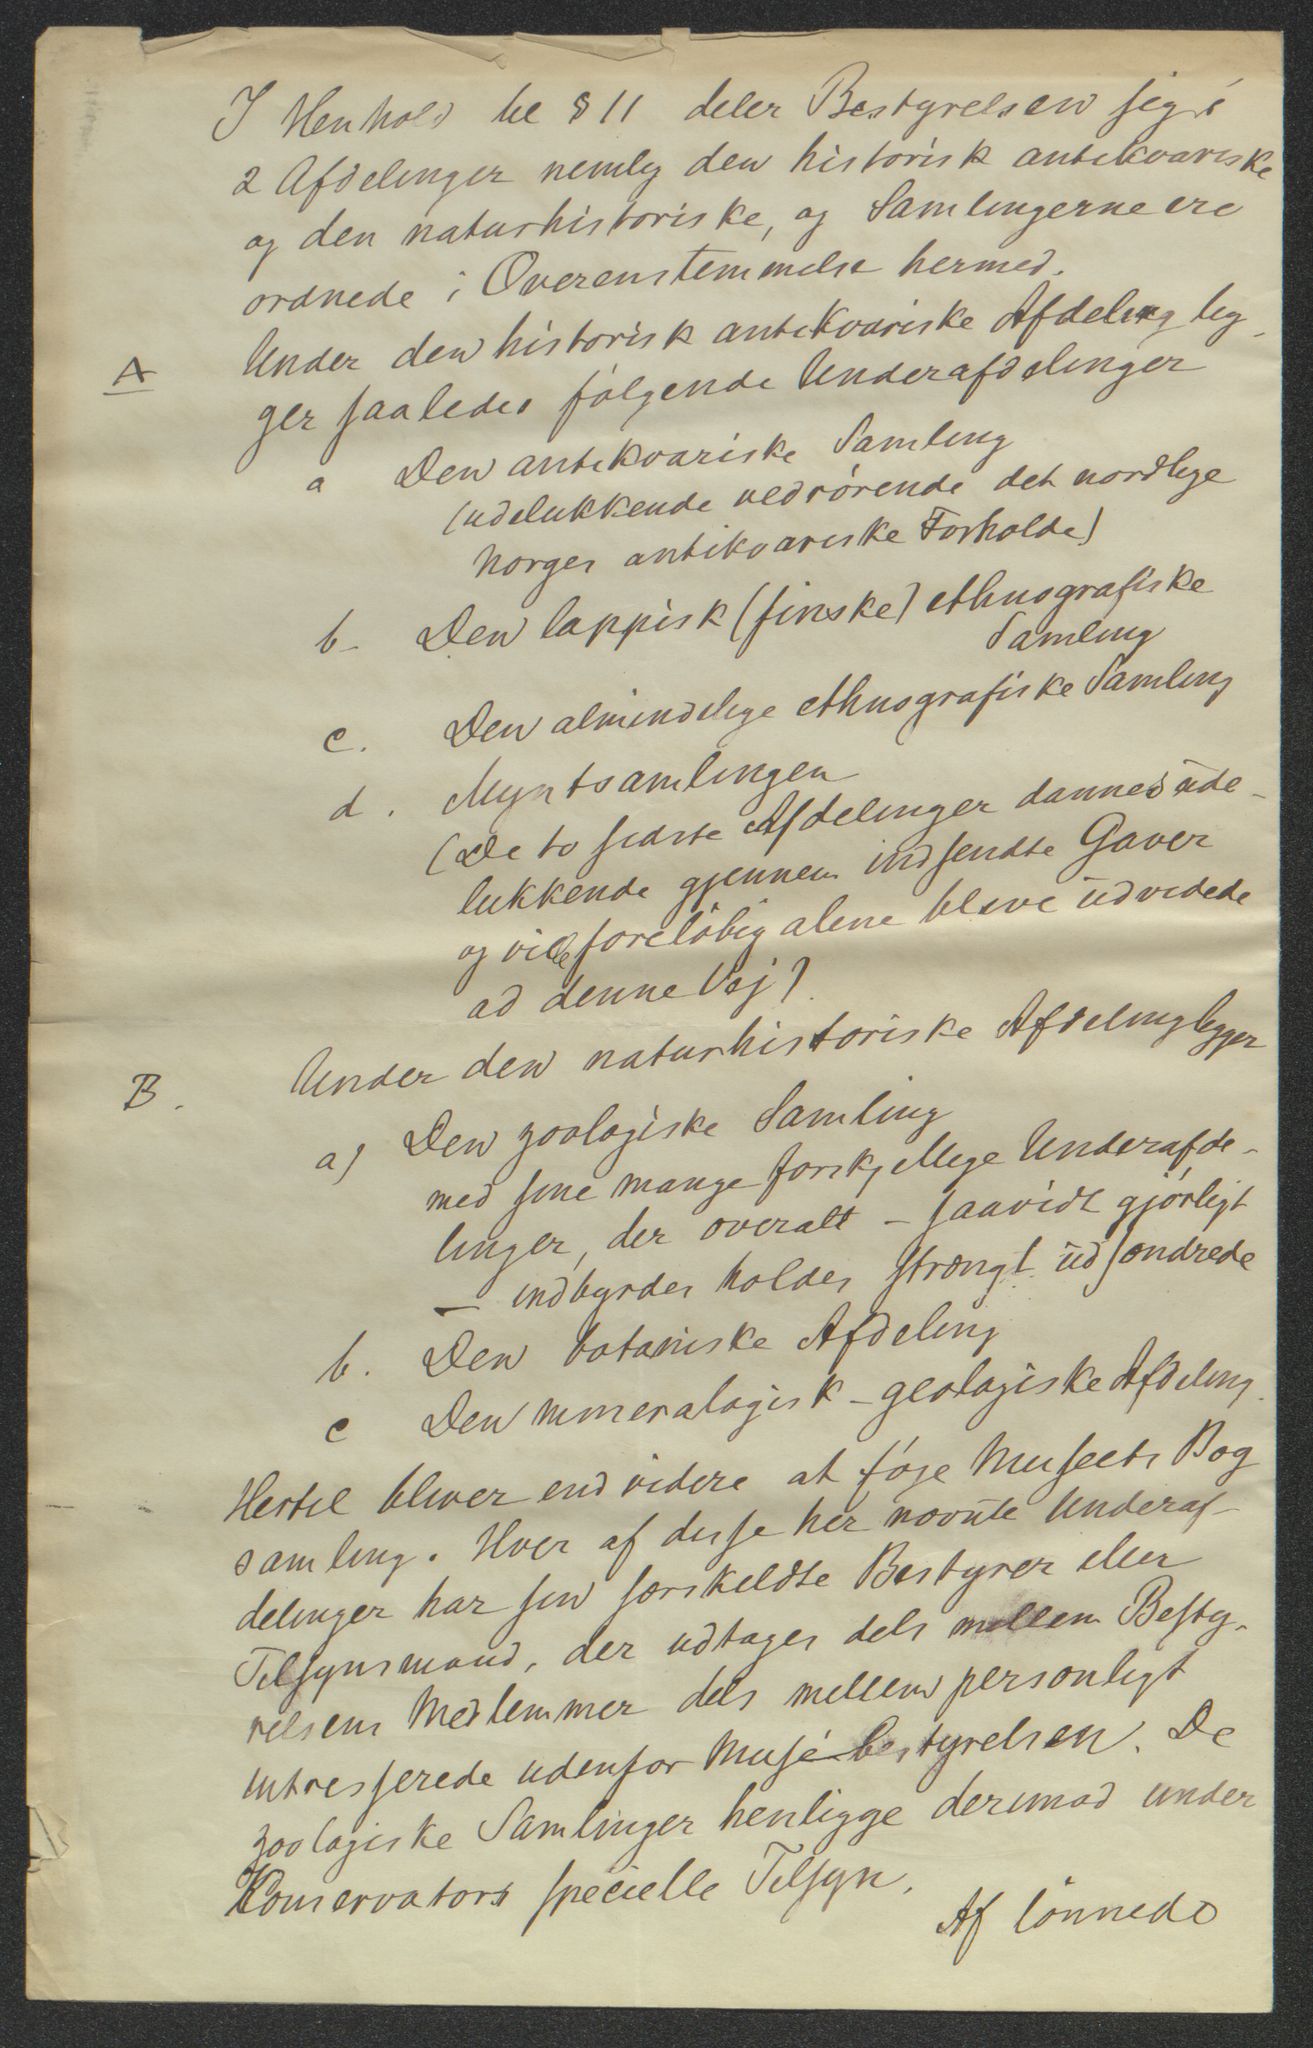 I Henhold til § 11 deler Bestyrelsen sig i
2 Afdelinger nemlig den historisk antikvariske
og den naturhistoriske, og Samlingerne ere
ordnede i Overenstemmelse hermed.
A Under den historisk antikvariske Afdeling lig-
ger saaledes følgende Underafdelinger
a Den antikvariske Samling
(udelukkende vedrørende det nordlige
Norges antikvariske Forholde)
b- Den lappisk (finske) ethnografiske
Samling
c. Den almindelige ethnografiske Samling
d. Myntsamlingen
(De to sidste Afdelinger dannes ude-
lukkende gjennem indsendte Gaver
og ville foreløbig alene blive udvidede
ad denne Vej)
B. Under den naturhistoriske Afdeling ligger
a) Den zoologiske Samling
med sine mange forskjellige Underafde-
linger, der overalt - saavidt gjørligt
- indbyrdes holdes strængt udsondrede
b. Den botaniske Afdeling
c Den mineralogisk-geologiske Afdeling.
Hertil bliver endvidere at føje Museets Bog
samling. Hver af disse her nævnte Underaf-
delinger har sin særskeldte Bestyrer eller
Tilsynsmand, der udtages dels mellem Besty-
relsens Medlemmer dels mellem personligt
intresserede udenfor Musébestyrelsen. De
zoologiske Samlinger henligge derimod under
Konservators specielle Tilsyn.
Af lønnede